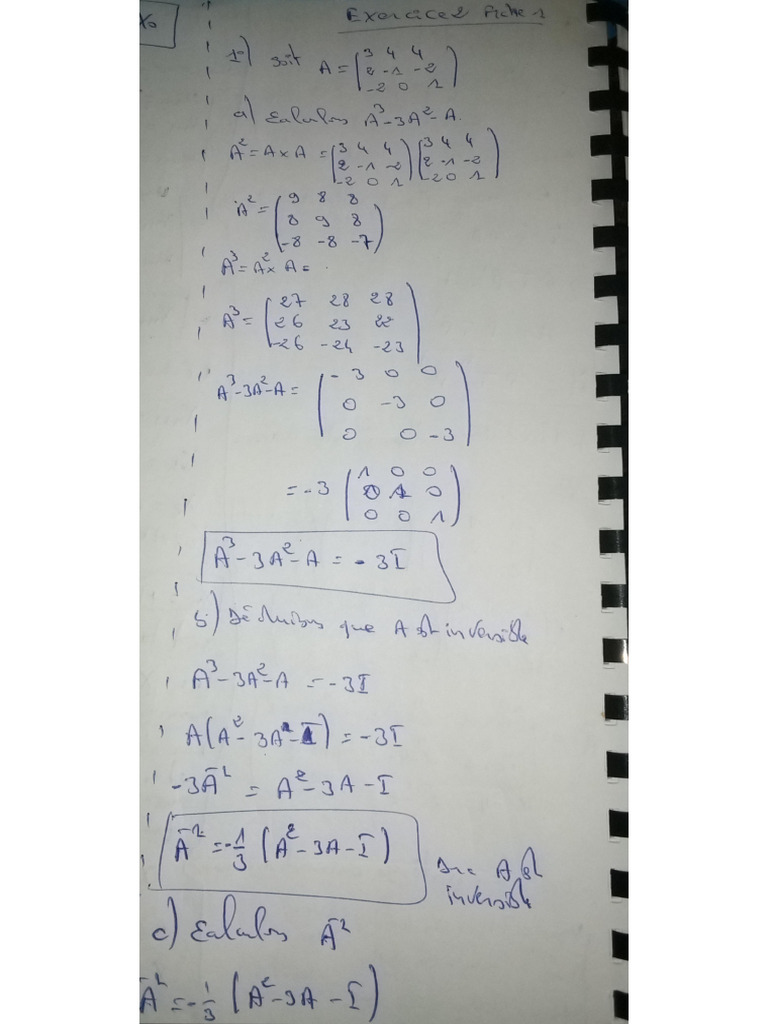 Exercice 2 Fiche 1
1°) Soit A = (3 4 4
2 -1 -2
-2 0 1)
a) Calculons A³-3A²-A.
A² = A×A = (3 4 4
2 -1 -2
-2 0 1) (3 4 4
2 -1 -2
-2 0 1)
A² = (9 8 8
8 9 8
-8 -8 -7)
A³ = A² × A =
A³ = (27 28 28
26 23 22
-26 -24 -23)
A³-3A²-A = (-3 0 0
0 -3 0
0 0 -3)
= -3 (1 0 0
0 1 0
0 0 1)
A³ - 3A² - A = - 3I
b) Déduisons que A est inversible
A³ - 3A² - A = -3I
A(A² - 3A - I) = -3I
-3A⁻¹ = A² - 3A - I
A⁻¹ = -1/3 (A² - 3A - I)
Donc A est
inversible
c) Calculons A⁻¹
A⁻¹ = -1/3 (A² - 3A - I)